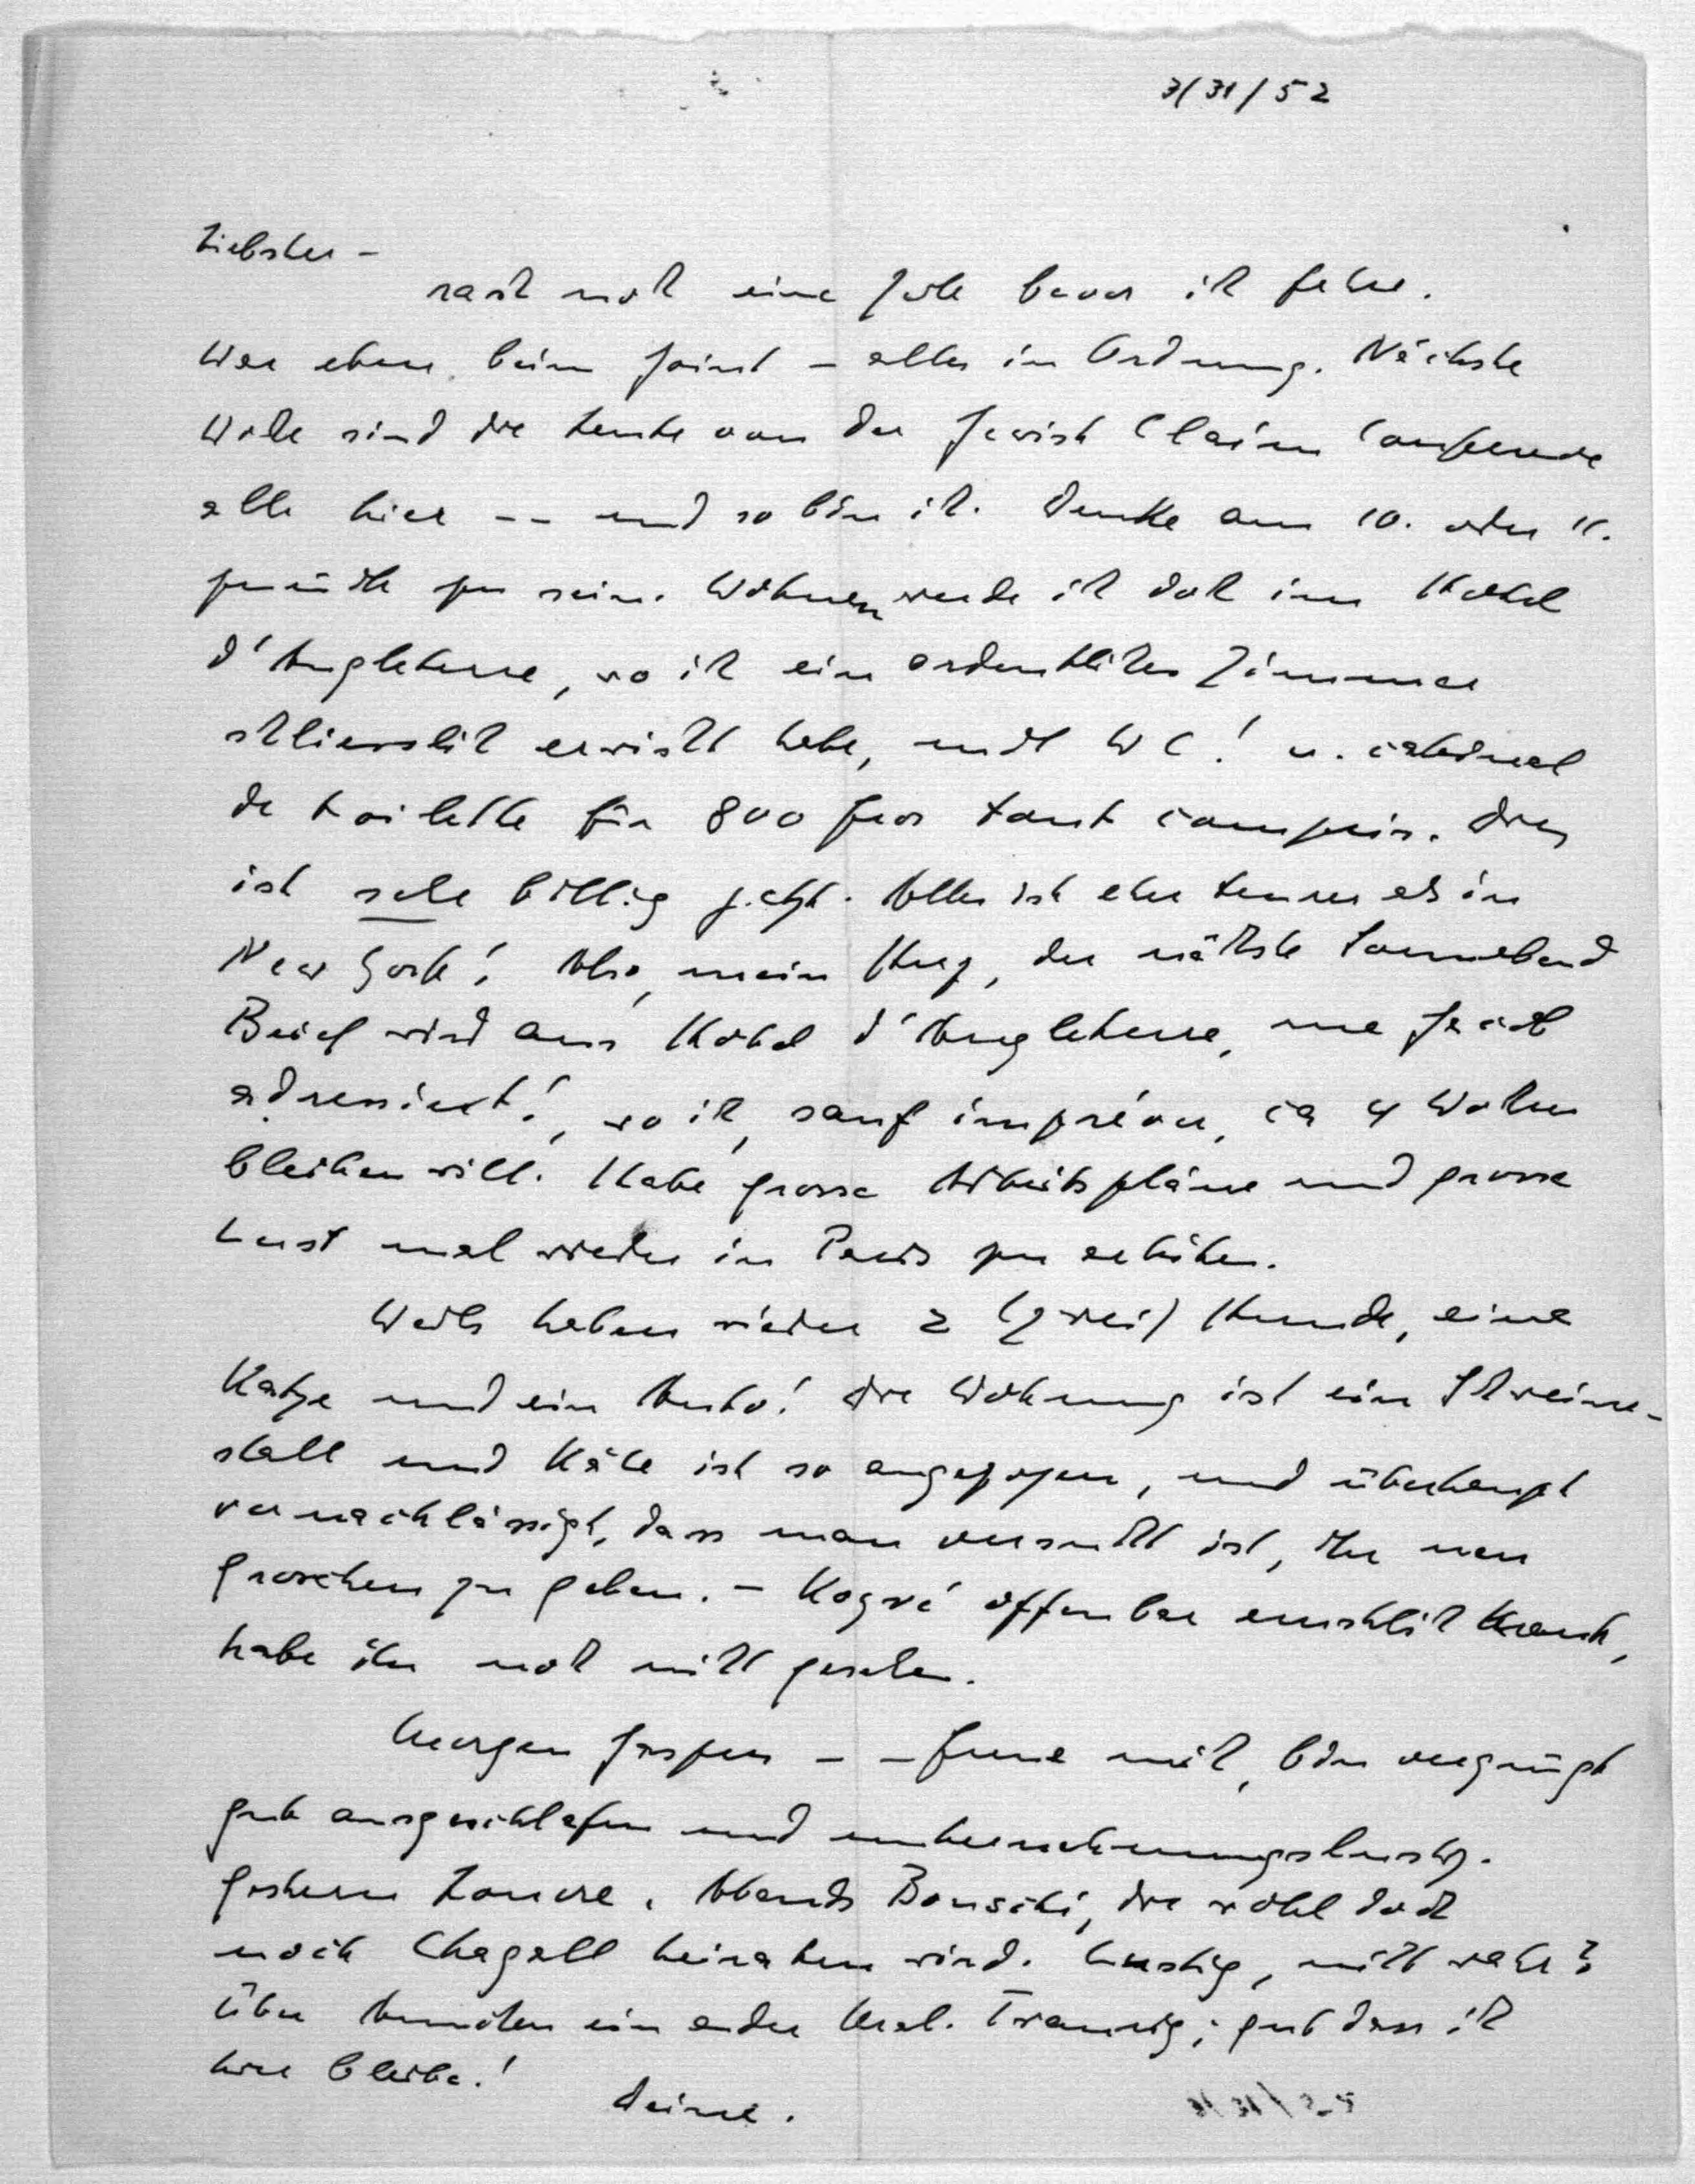 3/31/52
Liebster –
rasch noch eine Zeile bevor ich fahre.
War eben beim Joint – alles in Ordnung. Nächste
Woche sind die Leute von der Jewish Claim Conference
alle hier -- und so bin ich. Denke am 10. oder 11.
zurück zu sein. Wohnen werde ich doch im Hotel
d'Angleterre, wo ich ein ordentliches Zimmer
schliesslich erwischt habe, mit WC! u. cabinet
de toilette für 800 frcs tout compris. Dies
ist sehr billig jetzt. Alles ist eher teurer als in
New York! Also, mein Herz, der nächste Sonnabend
Brief wird ans Hotel d'Angleterre, rue Jacob
adressiert!, wo ich, sauf imprévu, ca 4 Wochen
bleiben will. Habe grosse Arbeitspläne und grosse
Lust mal wieder in Paris zu arbeiten.
Weils haben wieder 2 (zwei) Hunde, eine
Katze und ein Auto! Die Wohnung ist ein Schweine-
stall und Käte ist so angezogen, und überhaupt
vernachlässigt, dass man versucht ist, ihr nen
Groschen zu geben. – Kogré offenbar ernstlich krank,
habe ihn noch nicht gesehen.
Morgen Jaspers – – freue mich, bin vergnügt
gut ausgeschlafen und unternehmungslustig.
Gestern Louvre. Abends Bouschi, die wohl doch
noch Chagall heiraten wird. Lustig, nicht wahr?
Über München ein ander Mal. Traurig; gut dass ich
hier bleibe!
Deine.